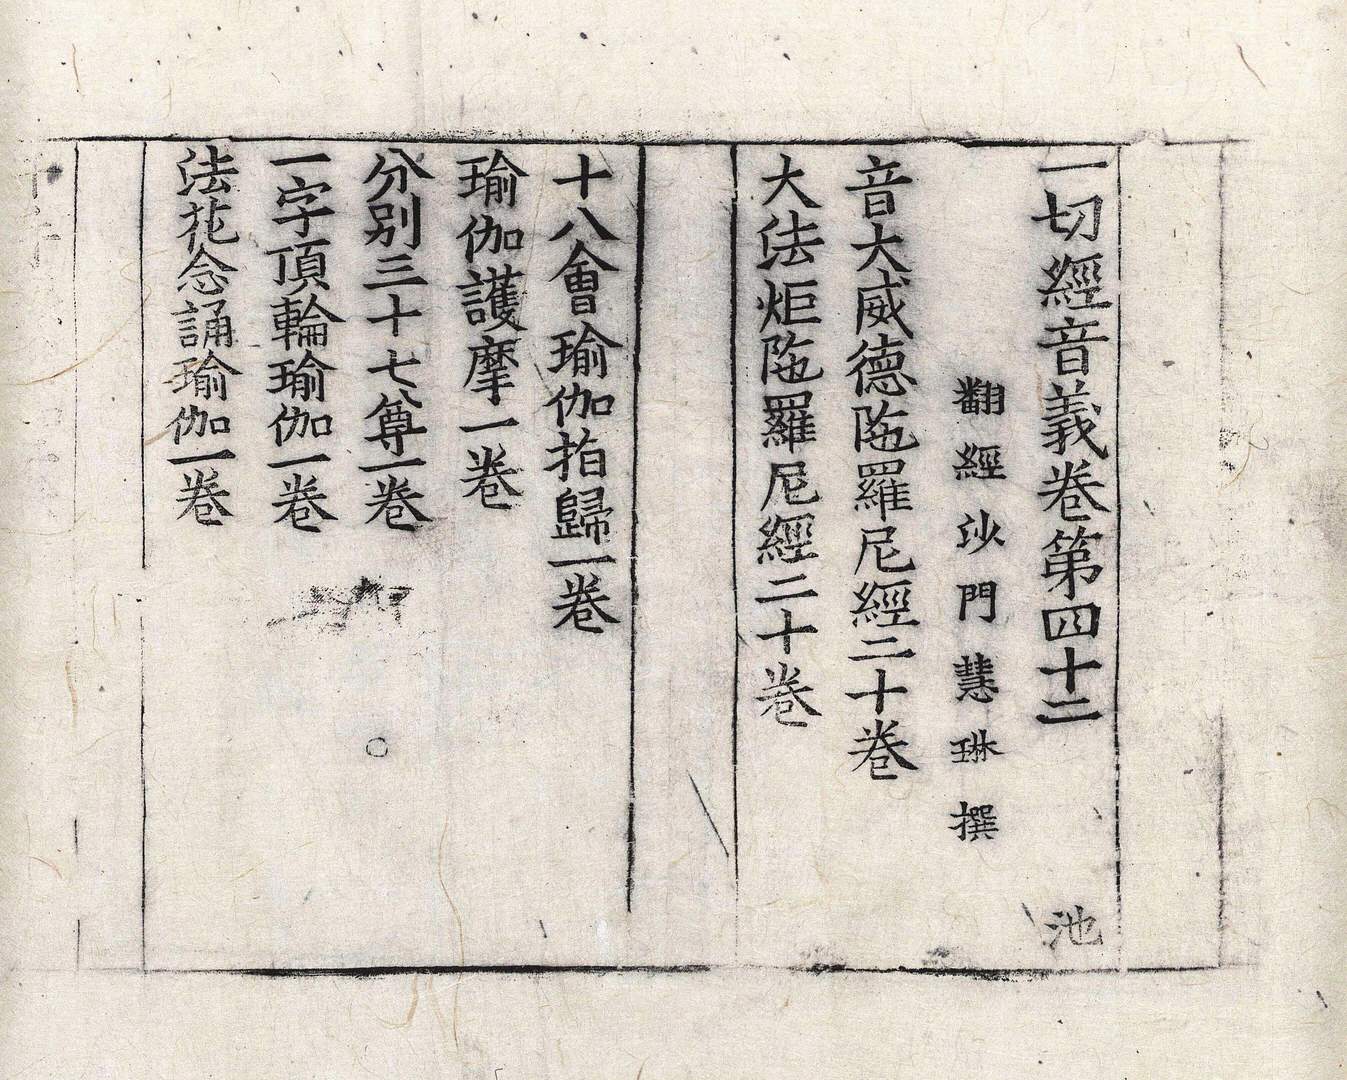 一切經音義卷第四十二 池
翻經沙門慧琳撰
音大威德陁羅尼經二十卷
大法炬陁羅尼經二十卷
十八會瑜伽指歸一卷
瑜伽護摩一卷
分別三十七尊一卷
一字頂輪瑜伽一卷
法花念誦瑜伽一卷